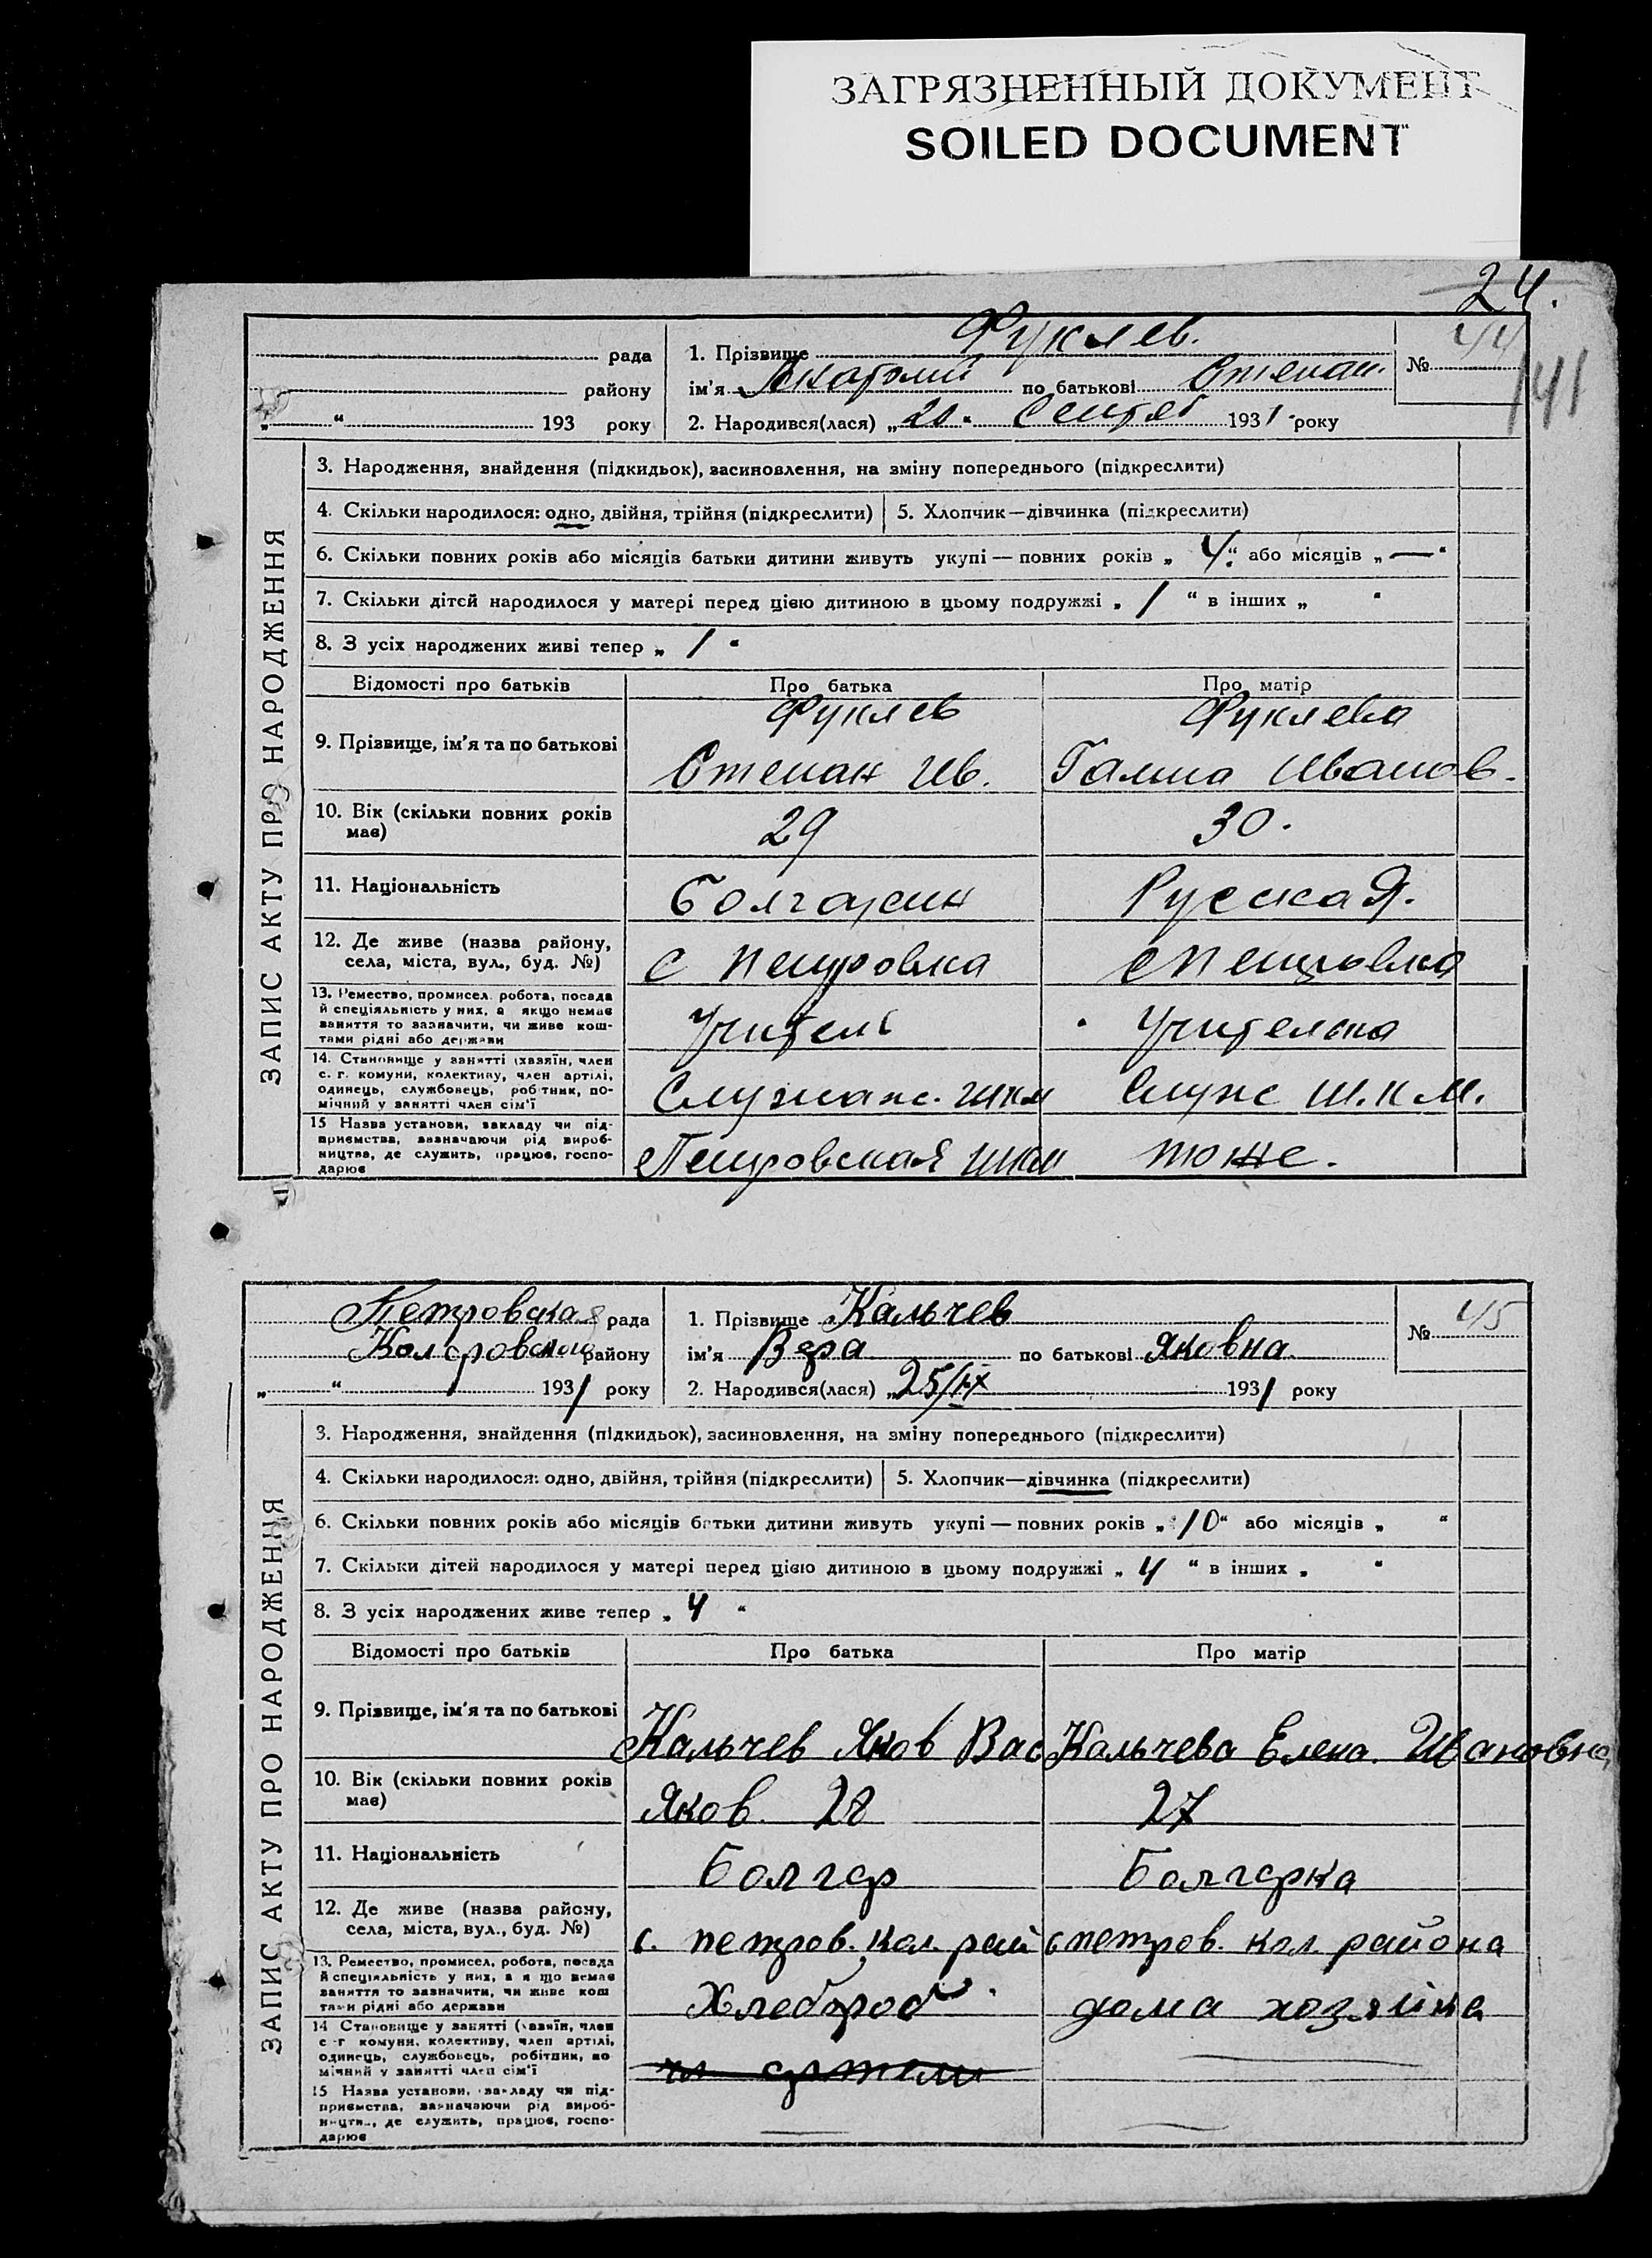 ЗАГРЯЗНЕННЫЙ ДОКУМЕНТ
SOILED DOCUMENT
24.
рада
району
„ “ 193 року
1. Прізвище Фукляев.
ім'я Анатолий по батькові Степан.
2. Народився(лася) „20“ Сентяб 1931 року
№ 44
141
ЗАПИС АКТУ ПРО НАРОДЖЕННЯ
3. Народження, знайдення (підкидьок), засиновлення, на зміну попереднього (підкреслити)
4. Скільки народилося: одно, двійня, трійня (підкреслити) 5. Хлопчик—дівчинка (підкреслити)
6. Скільки повних років або місяців батьки дитини живуть укупі — повних років „ 4 “ або місяців „ — “
7. Скільки дітей народилося у матері перед цією дитиною в цьому подружжі „ 1 “ в інших „ “
8. З усіх народжених живі тепер „ 1 “
Відомості про батьків Про батька Про матір
9. Прізвище, ім'я та по батькові
Фукляев Фукляева
Степан Ив. Галина Иванов.
10. Вік (скільки повних років має) 29 30.
11. Національність Болгарин Русская.
12. Де живе (назва району, села, міста, вул., буд. №) с Петровка с Петровка
13. Ремество, промисел, робота, посада й спеціяльність у них, а якщо немає заняття то зазначити, чи живе коштами рідні або держави Учитель Учителька
14. Становище у занятті (хазяїн, член с. г. комуни, колективу, член артілі, одинець, службовець, робітник, помічний у занятті член сім'ї Служащ. шкм Служ ш.к м.
15 Назва установи, закладу чи підприємства, зазначаючи рід виробництва, де служить, працює, господарює Петровская шкм тоже.
Петровская рада
Коларовского району
„ “ 1931 року
1. Прізвище Кальчев
ім'я Вера по батькові Яковна
2. Народився(лася) „25/IX 1931 року
№ 45
ЗАПИС АКТУ ПРО НАРОДЖЕННЯ
3. Народження, знайдення (підкидьок), засиновлення, на зміну попереднього (підкреслити)
4. Скільки народилося: одно, двійня, трійня (підкреслити) 5. Хлопчик—дівчинка (підкреслити)
6. Скільки повних років або місяців батьки дитини живуть укупі — повних років „ 10 “ або місяців „ “
7. Скільки дітей народилося у матері перед цією дитиною в цьому подружжі „ 4 “ в інших „ “
8. З усіх народжених живе тепер „ 4 “
Відомості про батьків Про батька Про матір
9. Прізвище, ім'я та по батькові Кальчев Яков Вас Кальчева Елена Ивановна
10. Вік (скільки повних років має) Яков. 28 27
11. Національність Болгар Болгарка
12. Де живе (назва району, села, міста, вул., буд. №) с. петров. кол. рай с петров. кол. района
13. Ремество, промисел, робота, посада й спеціяльність у них, а якщо немає заняття то зазначити, чи живе коштами рідні або держави Хлебороб дома хозяйка
14 Становище у занятті (хазяїн, член с г комуни, колективу, член артілі, одинець, службовець, робітник, помічний у занятті член сім'ї чл артели
15 Назва установи, закладу чи підприємства, зазначаючи рід виробництва, де служить, працює, господарює